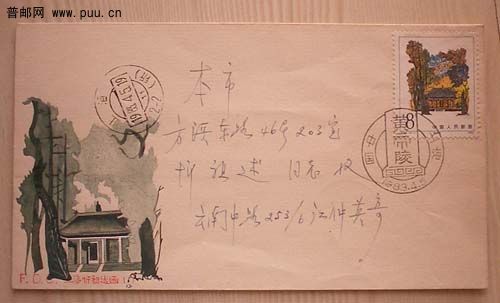 普邮网 www.puu.cn
本市
方浜东路46弄203室
同志 收
云南中路253/6江仲英寄
8
中国人民邮政
黄帝陵
中国
1983.4.5
上海
1983.4.5.19
F.D.C.